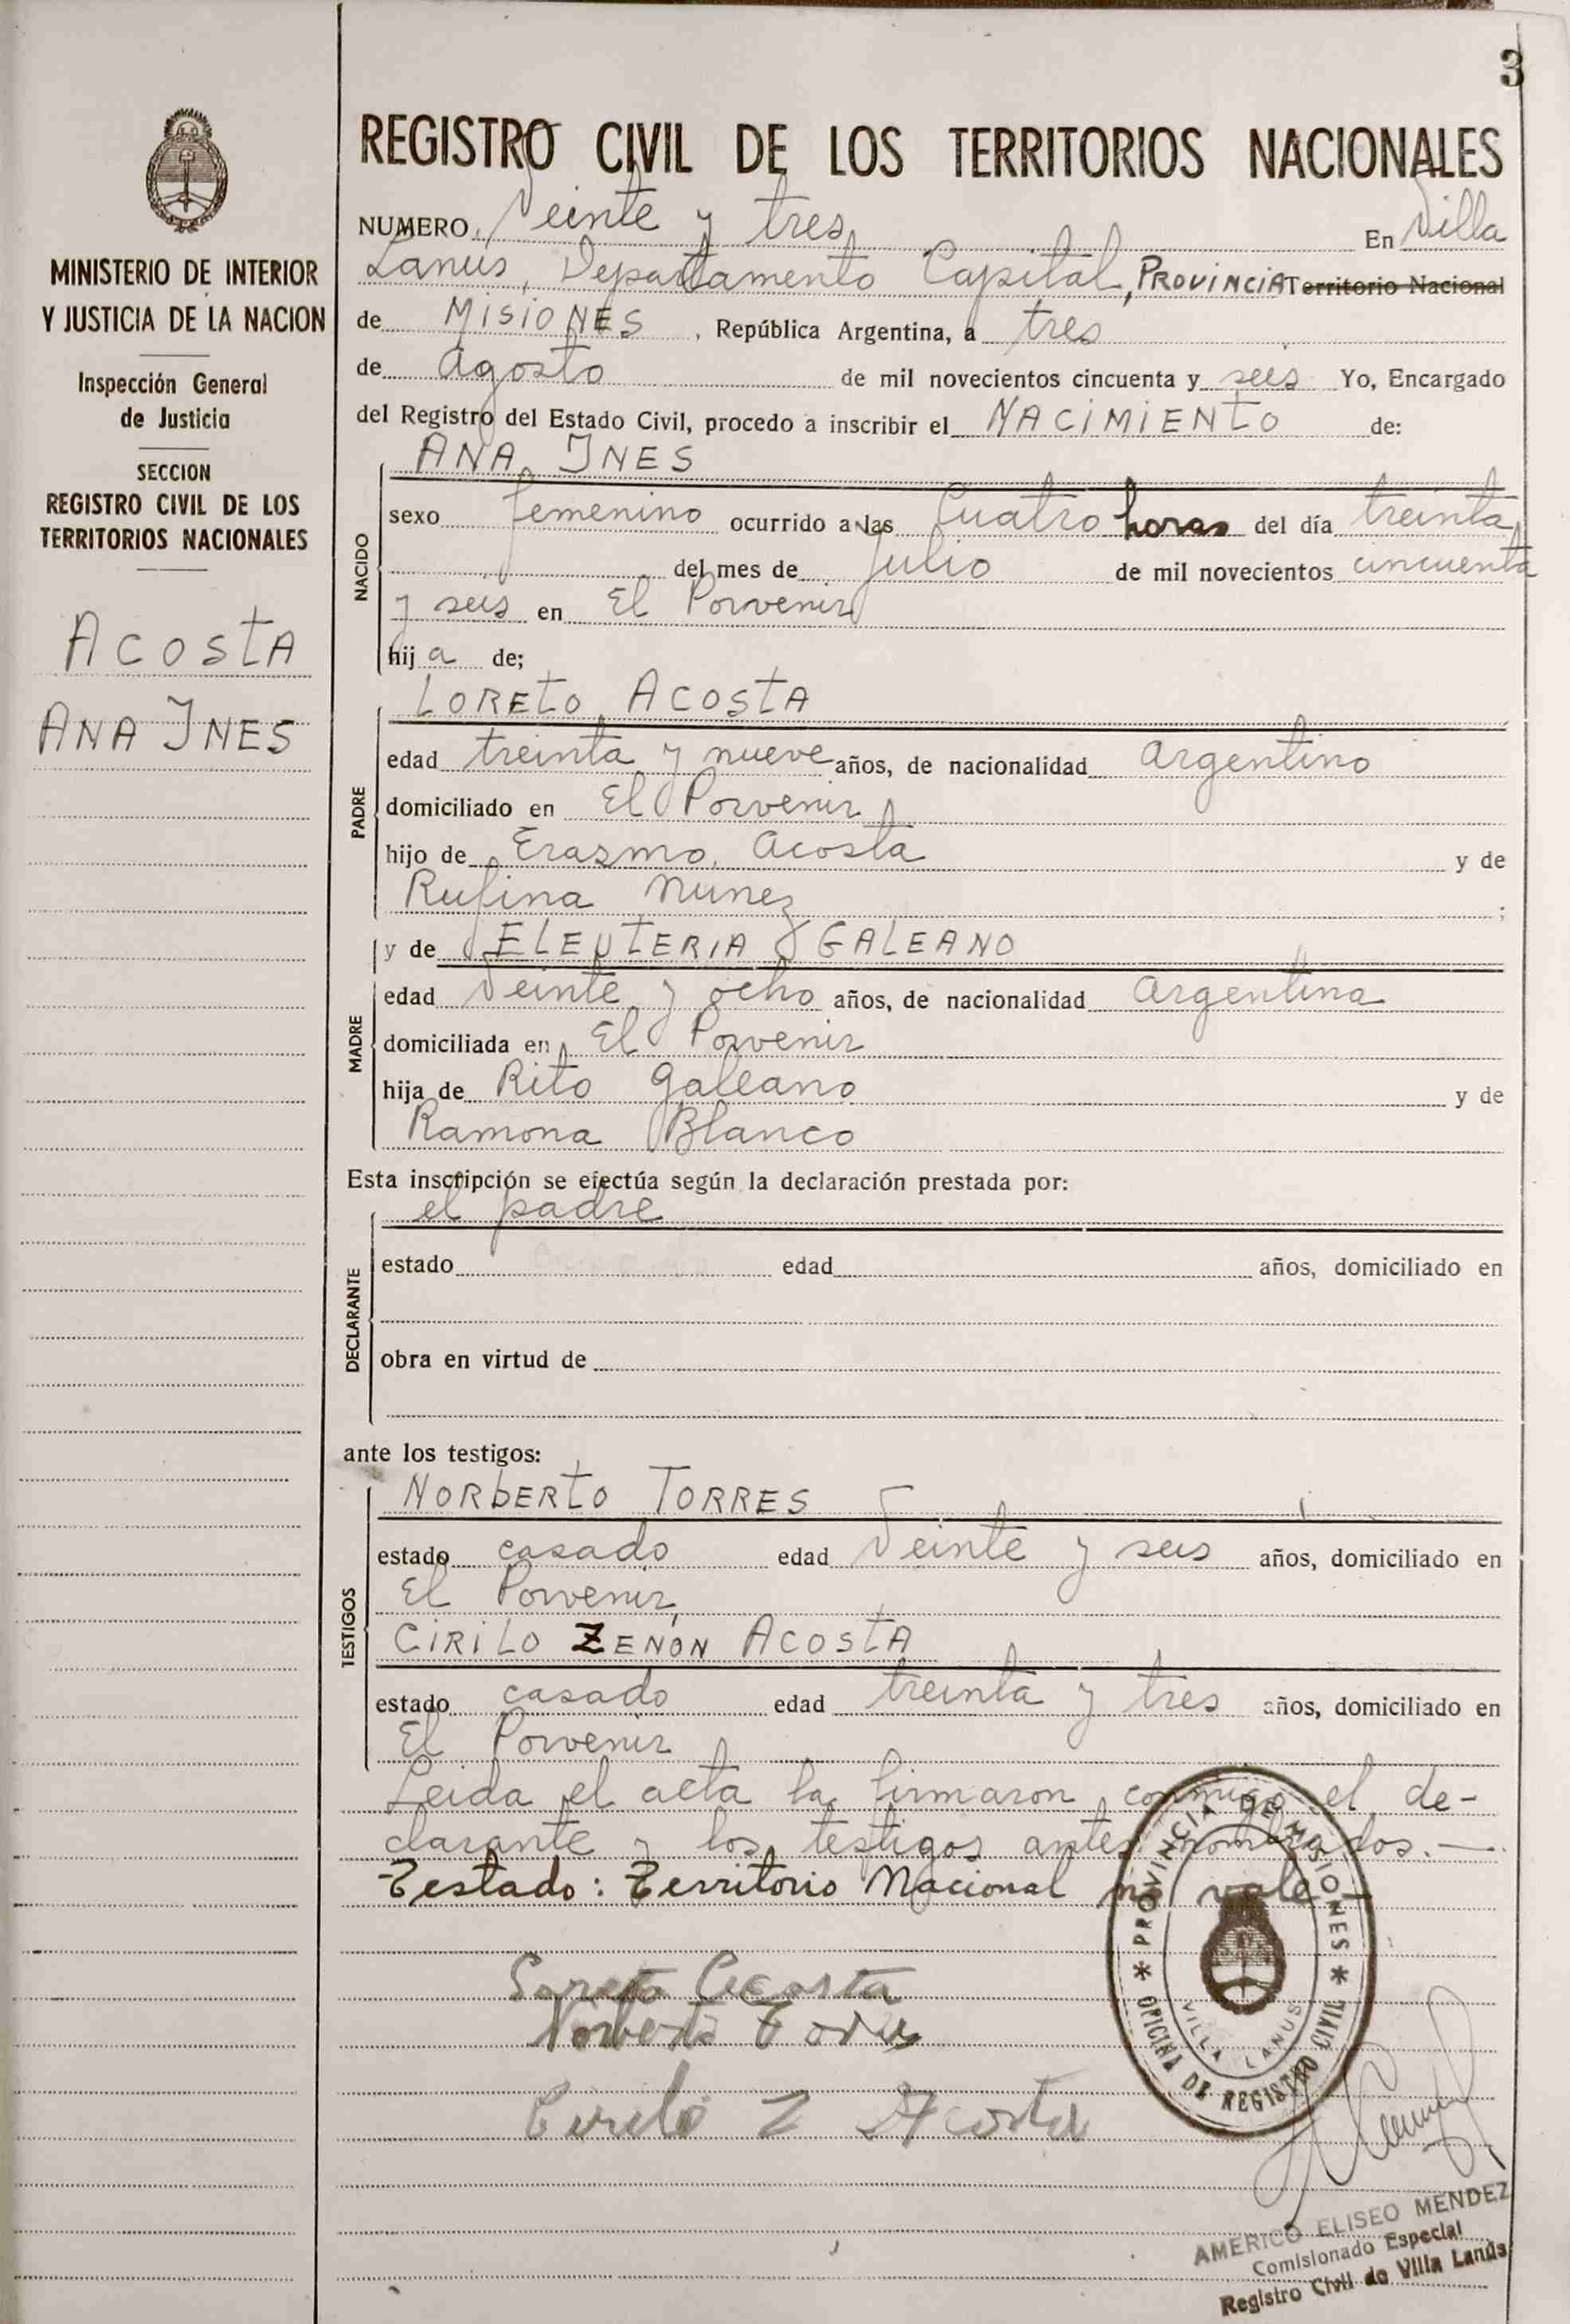 3
MINISTERIO DE INTERIOR
Y JUSTICIA DE LA NACION
Inspección General
de Justicia
SECCION
REGISTRO CIVIL DE LOS
TERRITORIOS NACIONALES
ACOSTA
ANA INES
REGISTRO CIVIL DE LOS TERRITORIOS NACIONALES
NUMERO Veinte y tres En Villa
Lanus, Departamento Capital, PROVINCIA Territorio Nacional
de MISIONES, República Argentina, a tres
de agosto de mil novecientos cincuenta y seis Yo, Encargado
del Registro del Estado Civil, procedo a inscribir el NACIMIENTO de:
NACIDO
ANA INES
sexo femenino ocurrido a las Cuatro horas del día treinta
del mes de Julio de mil novecientos cincuenta
y seis en El Porvenir
hija de;
PADRE
LORETO ACOSTA
edad treinta y nueve años, de nacionalidad argentino
domiciliado en El Porvenir
hijo de Erasmo Acosta y de
Rufina Nunez ;
y de ELEUTERIA GALEANO
MADRE
edad Veinte y ocho años, de nacionalidad argentina
domiciliada en El Porvenir
hija de Rito Galeano y de
Ramona Blanco
Esta inscripción se efectúa según la declaración prestada por:
DECLARANTE
el padre
estado edad años, domiciliado en
obra en virtud de
ante los testigos:
TESTIGOS
NORBERTO TORRES
estado casado edad Veinte y seis años, domiciliado en
El Porvenir
CIRILO ZENÓN ACOSTA
estado casado edad treinta y tres años, domiciliado en
El Porvenir
Leida el acta la firmaron conmigo el de-
clarante y los testigos antes nombrados.—
Testado: Territorio Nacional no vale
Loreto Acosta
Norberto Torres
Cirilo Z Acosta
* PROVINCIA DE MISIONES *
OFICINA DE REGISTRO CIVIL
VILLA LANUS
AMERICO ELISEO MENDEZ
Comisionado Especial
Registro Civil de Villa Lanús